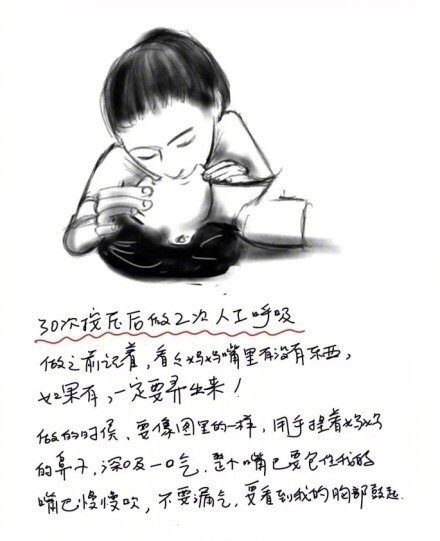 30次按压后做2次人工呼吸
做之前记着，看看妈妈嘴里有没有东西，
如果有，一定要弄出来！
做的时候，要像图里的一样，用手捏着妈妈
的鼻子，深吸一口气，整个嘴巴要包住我的
嘴巴慢慢吹，不要漏气，要看到我的胸部鼓起.